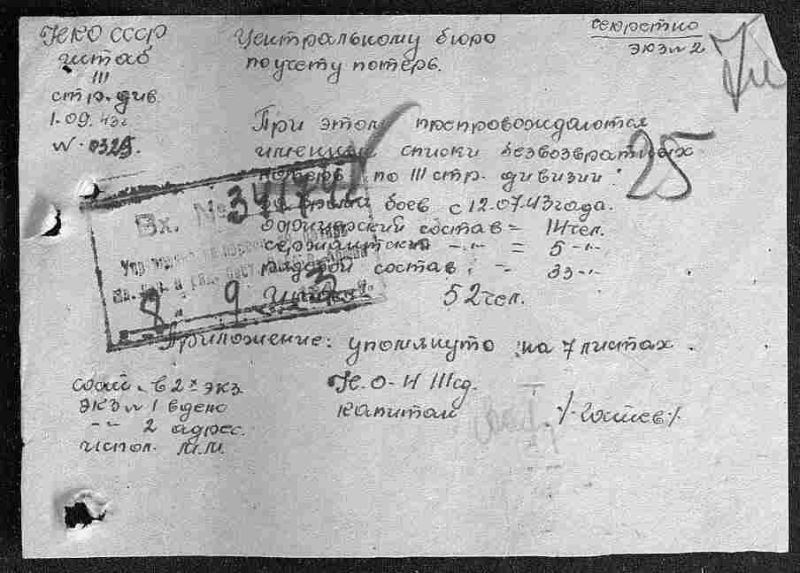 НКО СССР
штаб
111
стр. див.
1.09.43г
N. 0325
Центральному бюро
по учету потерь.
секретно
экз N 2
7л
При этом препровождаются
именные списки безвозвратных
потерь по 111 стр. дивизии:
25
боев с 12.07.43 года.
офицерский состав = 14 чел.
сержантский -"- = 5 -"-
рядовой состав: - 33 -"-
52 чел.
Вх. №
8 9 3
Приложение: упомянуто на 7 листах.
в 2х экз
экз N 1 в дело
-"- 2 адрес.
испол. М.М.
Н.О-И 111 сд.
капитан